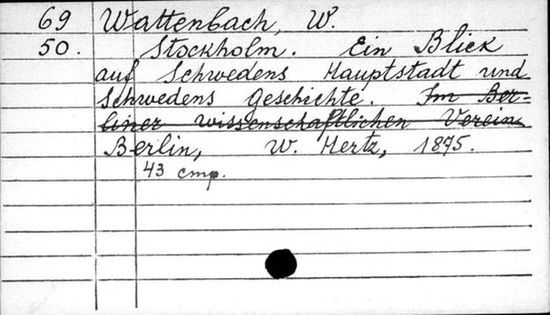 69 Wattenbach, W.
50. Stockholm. Ein Blick
auf Schwedens Hauptstadt und
Schwedens Geschichte. Im Ber-
liner wissenschaftlichen Verein
Berlin, W. Hertz, 1875.
43 стр.